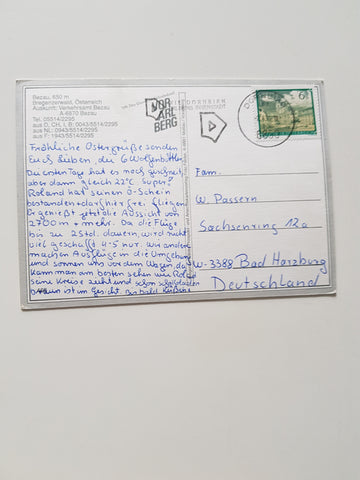 Bezau, 650 m
Bregenzerwald, Österreich
Auskunft: Verkehrsamt Bezau
A-6870 Bezau
Tel. 05514/2295
aus D, CH, I, B: 0043/5514/2295
aus NL: 0943/5514/2295
aus F: 1943/5514/2295
VOR
ARL
BERG
6
Fröhliche Ostergrüße senden
Euch Lieben, die 6 Wolfenbüttler.
Die ersten Tage hat es noch geschneit
aber dann gleich 22°C Super!
Roland hat seinen Ö-Schein
bestanden + darf hier frei fliegen.
Er genießt jetzt die Aussicht von
2700 m + mehr. Da die Flüge
bis zu 2 Std. dauern, wird nicht
viel geschafft 4-5 nur. Wir andere
machen Ausflüge in die Umgebung
und sonnen uns vor dem Wagen, da
kann man am besten sehen wie Roland
seine Kreise zieht und schon schokoladen
braun ist im Gesicht. bis bald
Fam.
W. Passern
Sachsenring 12a
W-3388 Bad Harzburg
Deutschland